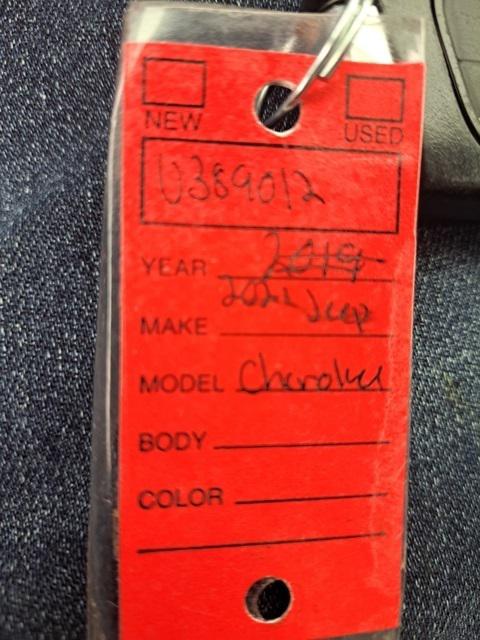 NEW
USED
U389012
YEAR 2019
2021 Jeep
MAKE
MODEL Cherokee
BODY
COLOR